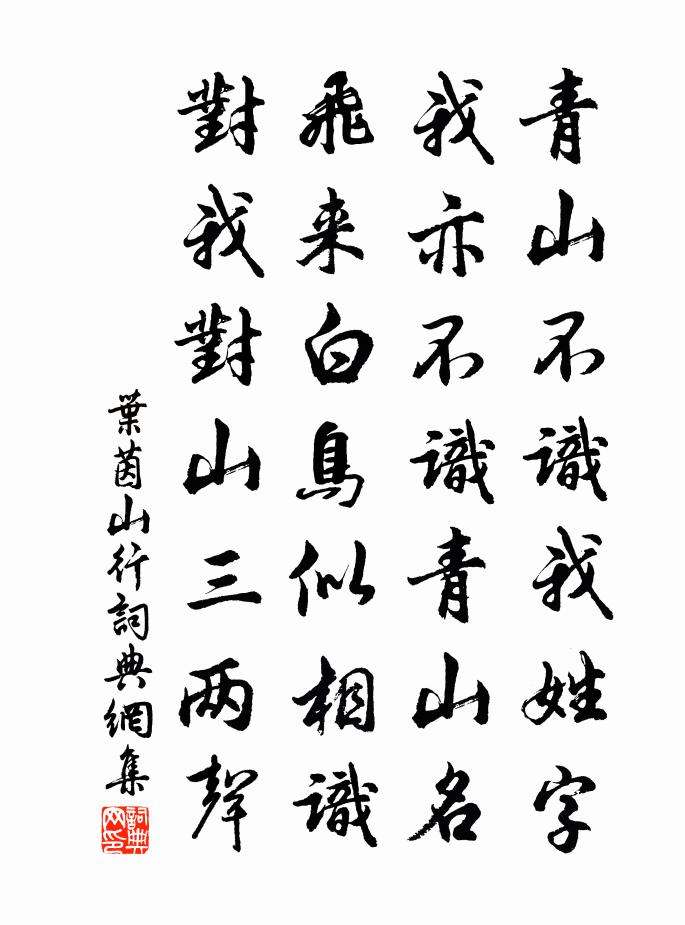 青山不識我姓字
我亦不識青山名
飛来白鳥似相識
對我對山三兩聲
葉茵山行詞典網集
詞典网印